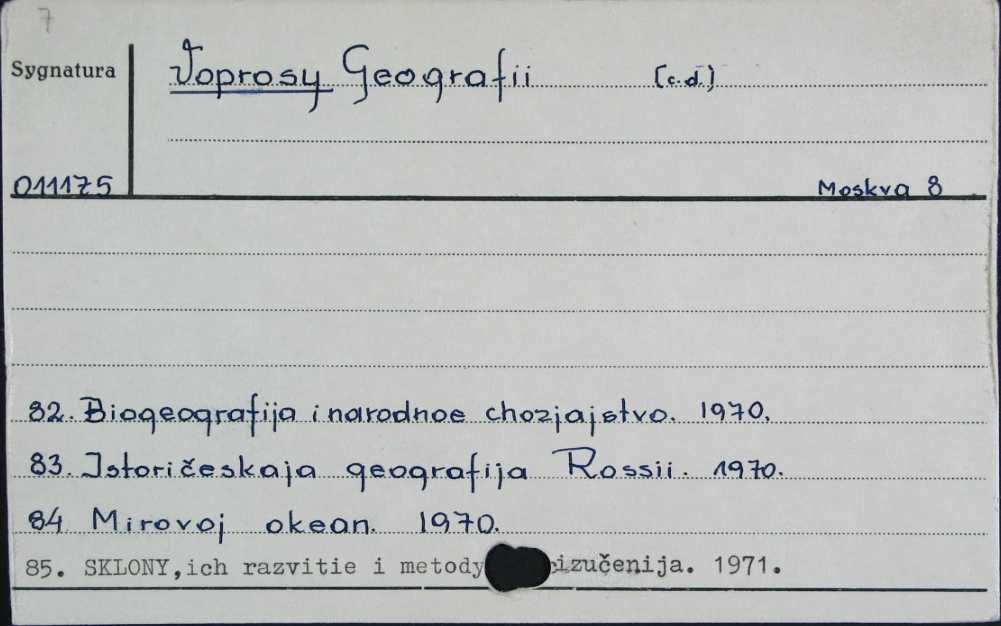 7
Sygnatura
Voprosy Geografii (c.d.)
011175
Moskva 8
82. Biogeografija i narodnoe chozjajstvo. 1970.
83. Istoričeskaja geografija Rossii. 1970.
84 Mirovoj okean. 1970.
85. SKLONY,ich razvitie i metody izučenija. 1971.